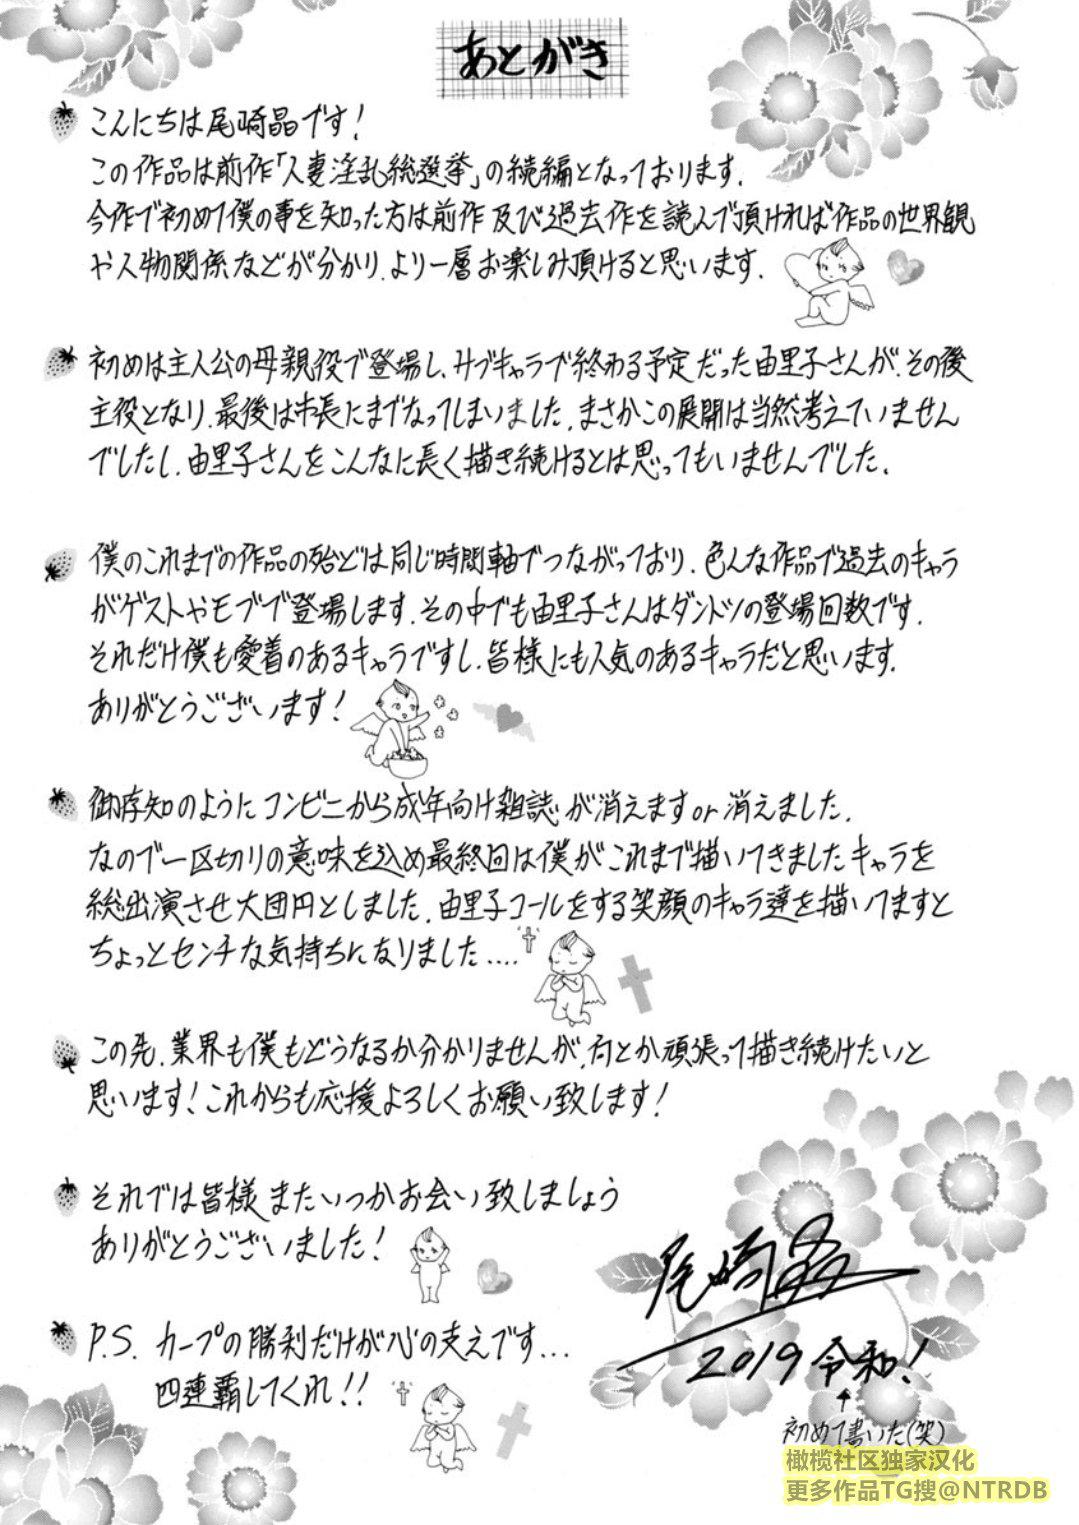 あとがき
こんにちは尾崎晶です!
この作品は前作「人妻淫乱総選挙」の続編となっております.
今作で初めて僕の事を知った方は前作及び過去作を読んで頂ければ作品の世界観
や人物関係などが分かり、より一層お楽しみ頂けると思います.
初めは主人公の母親役で登場し、サブキャラで終わる予定だった由里子さんが、その後
主役となり、最後は市長にまでなってしまいました。まさかこの展開は当然考えていません
でしたし、由里子さんをこんなに長く描き続けるとは思ってもいませんでした.
僕のこれまでの作品の殆どは同じ時間軸でつながっており、色んな作品で過去のキャラ
がゲストやモブで登場します。その中でも由里子さんはダントツの登場回数です.
それだけ僕も愛着のあるキャラですし、皆様にも人気のあるキャラだと思います.
ありがとうございます!
御存知のようにコンビニから成年向け雑誌が消えますor消えました.
なので一区切りの意味を込め最終回は僕がこれまで描いてきましたキャラを
総出演させ大団円としました。由里子コールをする笑顔のキャラ達を描いてますと
ちょっとセンチな気持ちになりました....
この先、業界も僕もどうなるか分かりませんが、何とか頑張って描き続けたいと
思います!これからも応援よろしくお願い致します!
それでは皆様またいつかお会い致しましょう
ありがとうございました!
P.S. カープの勝利だけが心の支えです...
四連覇してくれ!!
尾崎晶
2019 令和!
初めて書いた(笑)
橄榄社区独家汉化
更多作品TG搜@NTRDB